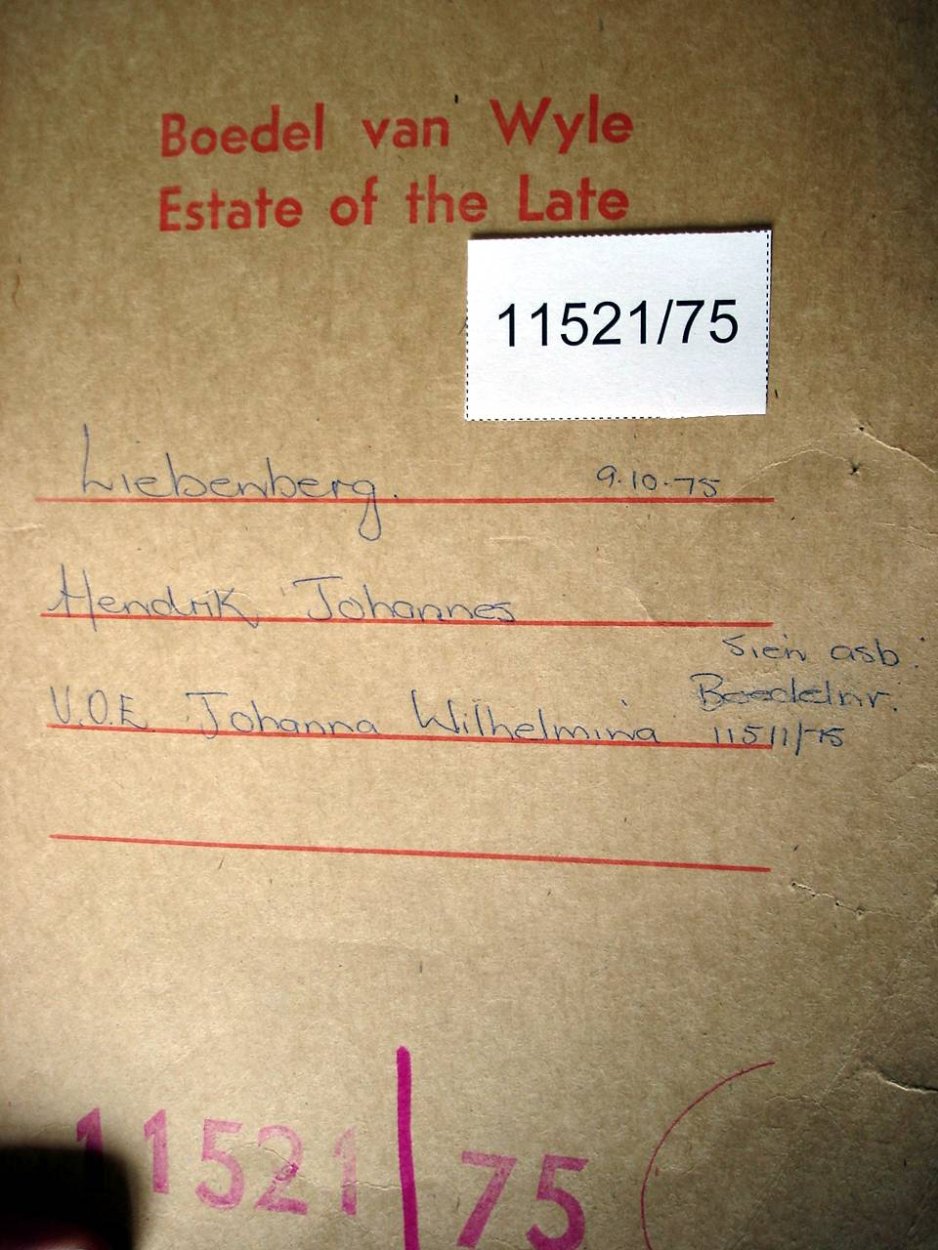 Boedel van Wyle
Estate of the Late
11521/75
Liebenberg. 9.10.75
Hendrik Johannes
Sien asb:
V.O.E. Johanna Wilhelmina Boedelnr.
11511/75
11521/75